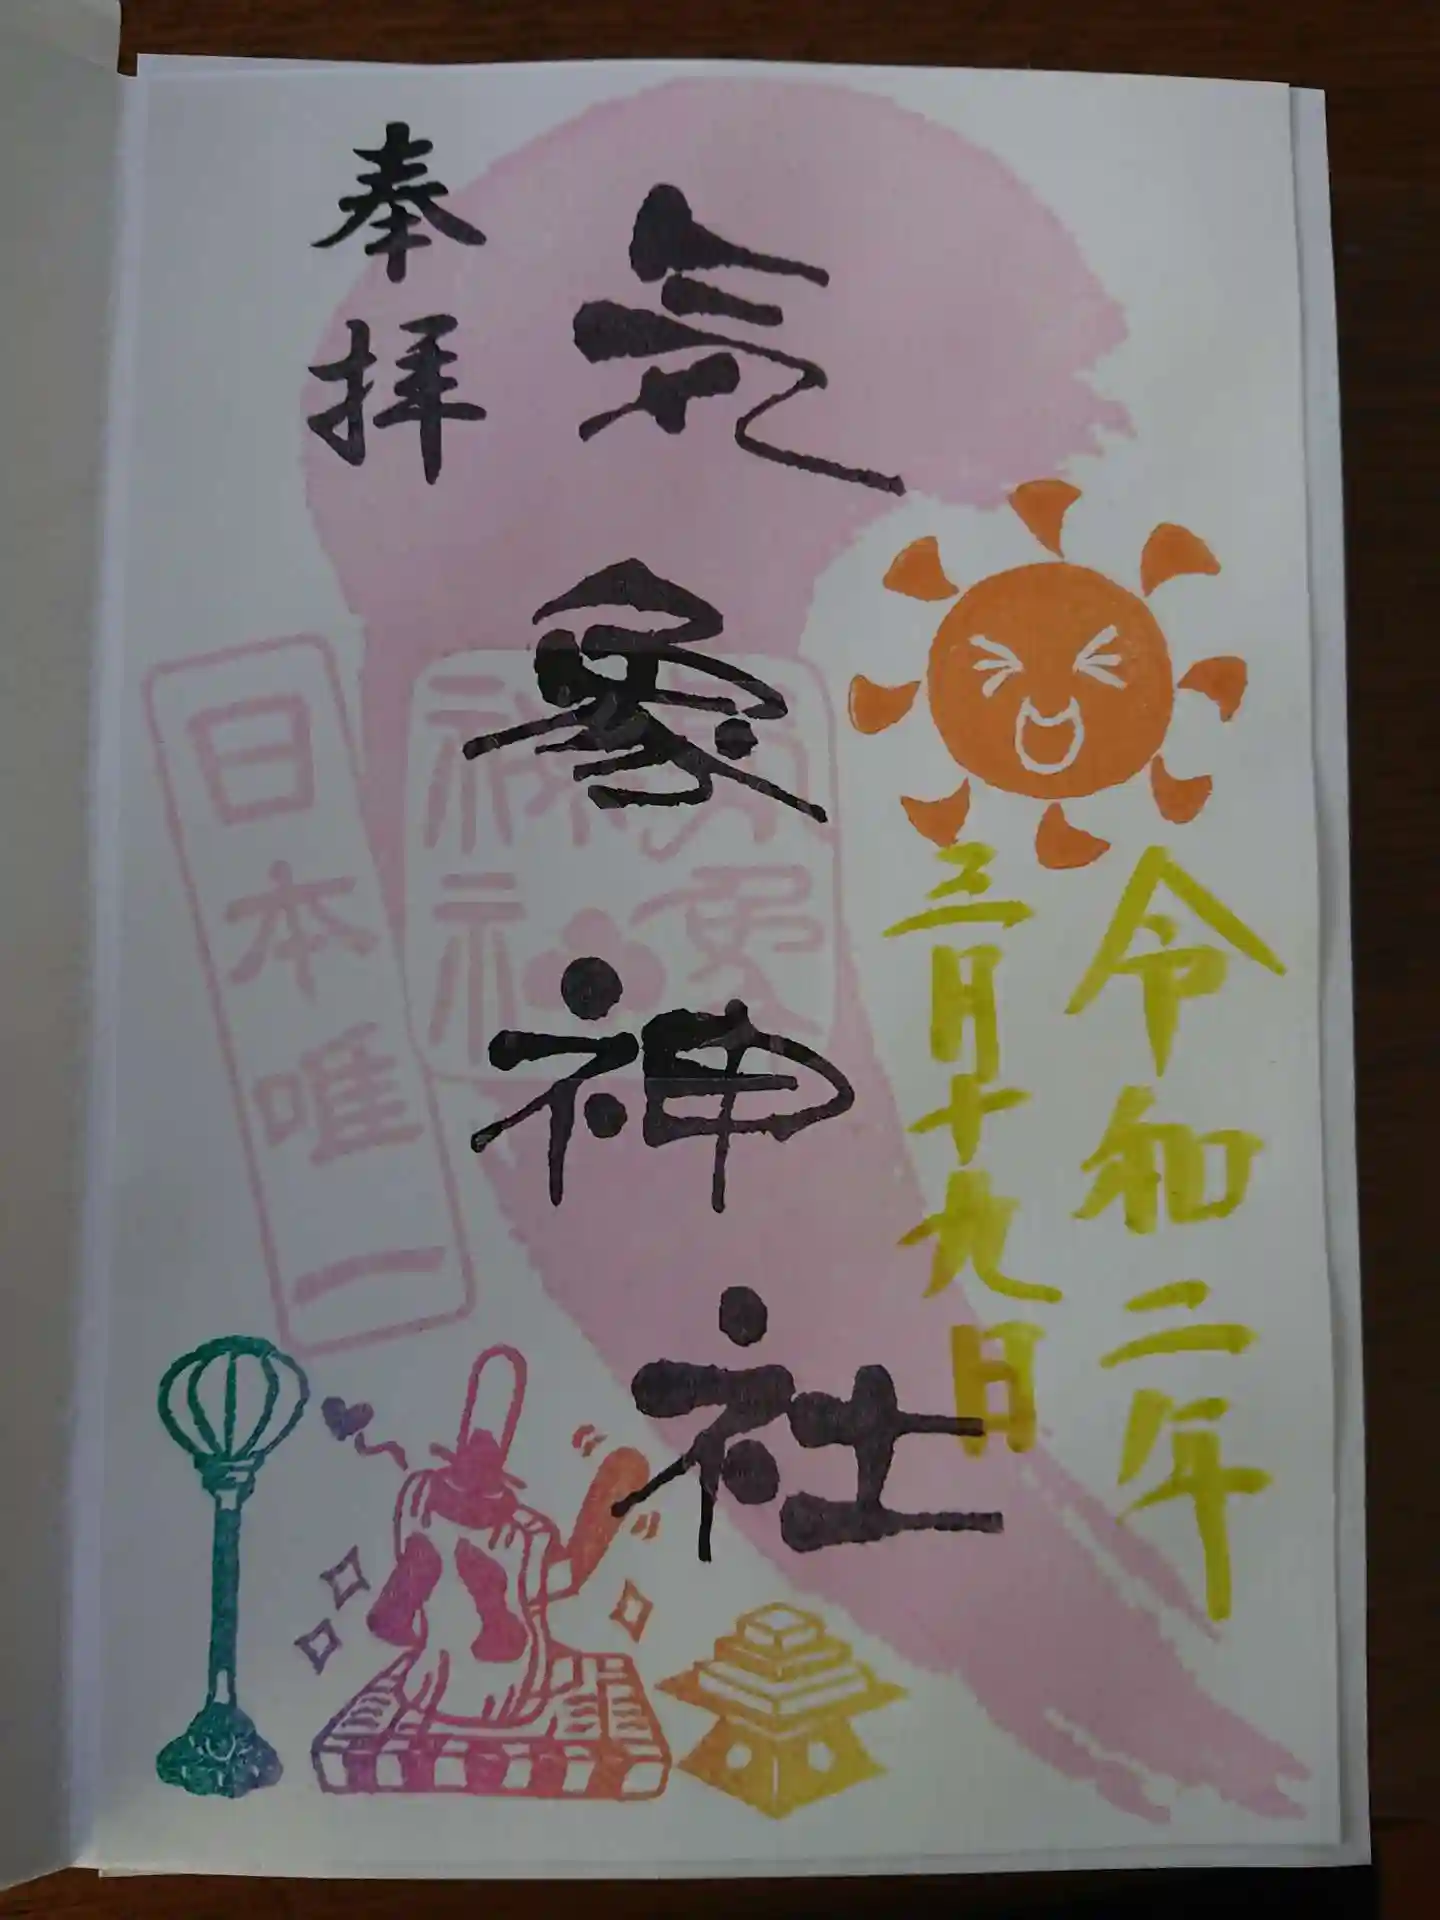 奉拝
気象神社
令和二年
三月十九日
日本唯一